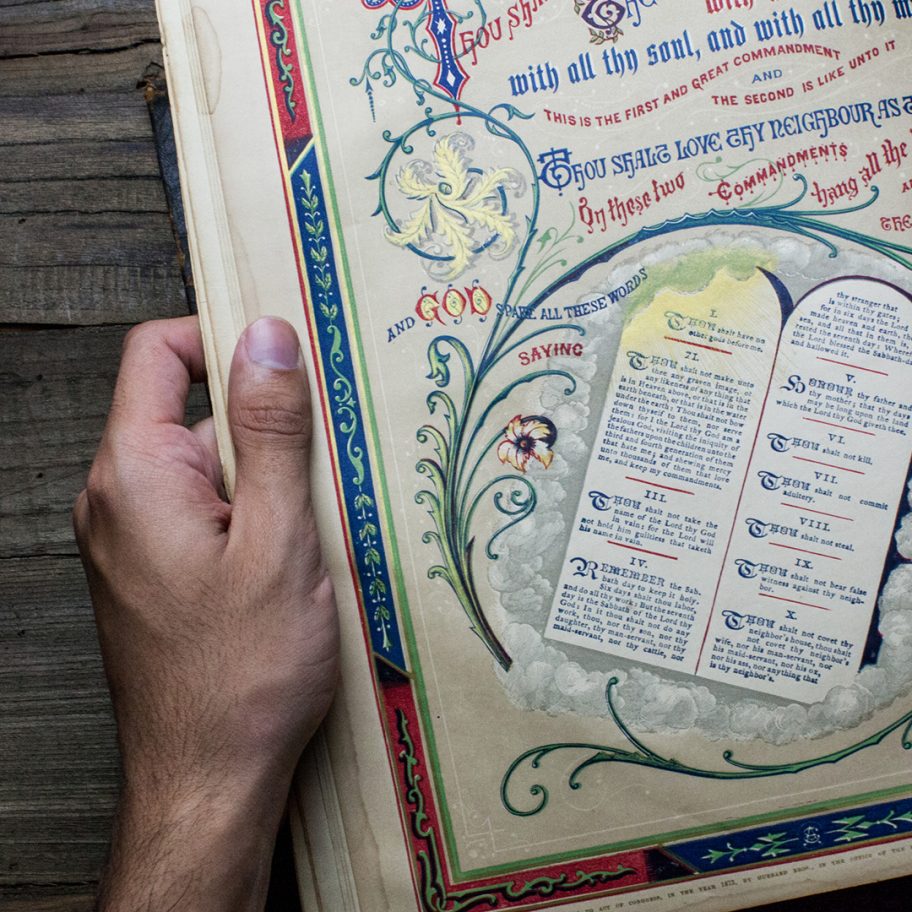 Thou shalt
with all thy soul, and with all thy
THIS IS THE FIRST AND GREAT COMMANDMENT
AND
THE SECOND IS LIKE UNTO IT
Thou shalt love thy neighbour as
On these two Commandments hang all the
AND GOD SPAKE ALL THESE WORDS
SAYING
I.
Thou shalt have no
other gods before me.
II.
Thou shalt not make unto
thee any graven image, or
any likeness of any thing that
is in Heaven above, or that is in the
earth beneath, or that is in the water
under the earth: Thou shalt not bow
down thyself to them, nor serve
them: for I the Lord thy God am a
jealous God, visiting the iniquity of
the fathers upon the children unto the
third and fourth generation of them
that hate me; and shewing mercy
unto thousands of them that love
me, and keep my commandments.
III.
Thou shalt not take the
name of the Lord thy God
in vain: for the Lord will
not hold him guiltless that taketh
his name in vain.
IV.
Remember the Sab-
bath day to keep it holy.
Six days shalt thou labor,
and do all thy work: But the seventh
day is the Sabbath of the Lord thy
God: In it thou shalt not do any
work, thou, nor thy son, nor thy
daughter, thy man-servant, nor thy
maid-servant, nor thy cattle, nor
thy stranger that
for in six days the Lord
made heaven and earth,
sea, and all that in them
rested the seventh day: Wherefore
the Lord blessed the Sabbath-d
and hallowed it.
V.
Honour thy father and
thy mother; that thy days
may be long upon the land
which the Lord thy God giveth thee.
VI.
Thou shalt not kill.
VII.
Thou shalt not commit
adultery.
VIII.
Thou shalt not steal.
IX.
Thou shalt not bear false
witness against thy neigh-
bor.
X.
Thou shalt not covet thy
neighbor's house, thou shalt
not covet thy neighbor's
wife, nor his man-servant, nor
his maid-servant, nor his ox,
nor his ass, nor anything that
is thy neighbor's.
TO ACT OF CONGRESS, IN THE YEAR 1873, BY HUBBARD BROS., IN THE OFFICE OF THE